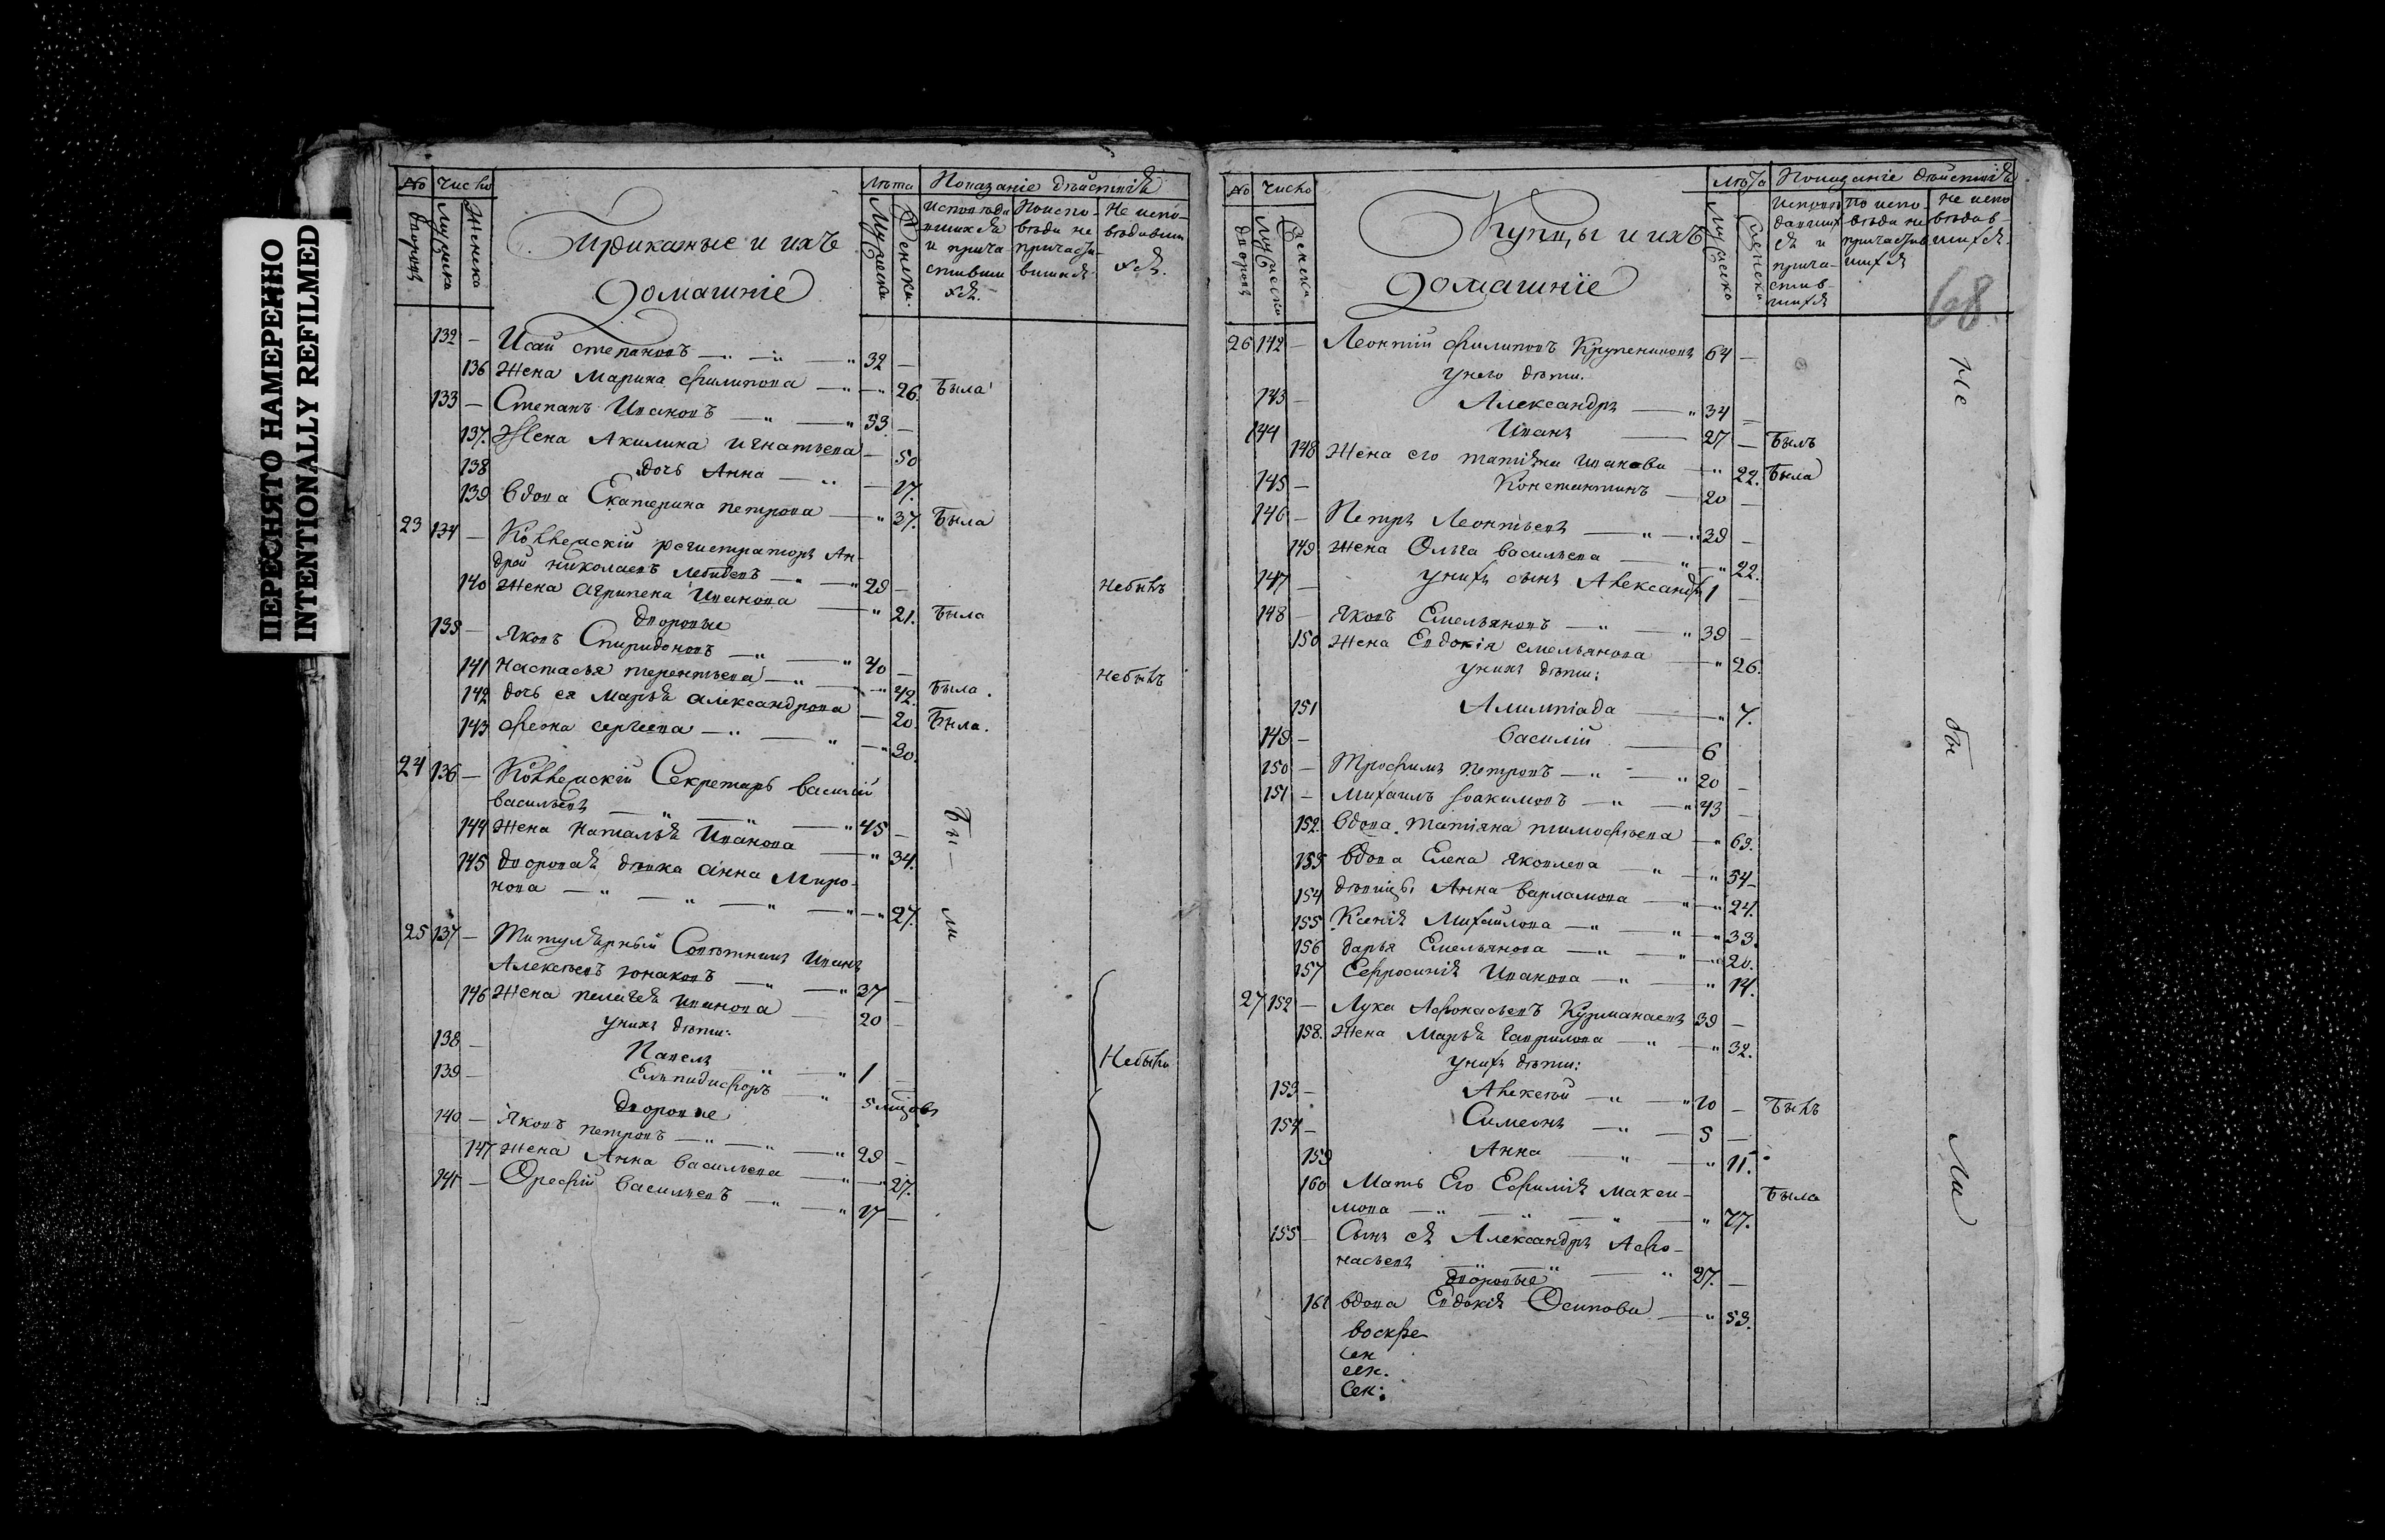 ПЕРЕСНЯТО НАМЕРЕННО
INTENTIONALLY REFILMED
№ Число Лѣта Показаніе дѣйствія
дворовъ Мужеска Женска
Приказные и ихъ
домашніе
Мужеска Женска
Исповѣда
вшихся
и прича
стивши
хся.
По испо-
вѣди не
причасти-
вшихся
Не испо-
вѣдавши
хся.
132 — Исаи Степановъ — 32 —
136 Жена Марина Филипова — 26. Была
133 — Степанъ Ивановъ — 53. —
137. Жена Акилина Игнатьева — 50
138 дочь Анна — 17.
139 вдова Екатерина Петрова — 37. Была
23 134 — Коллежскій регистраторъ Ан-
дрей Николаевъ — 29 — Небылъ
140 Жена Агрипена Иванова — 21. Была
дворовые
135 — Яковъ Спиридоновъ — 40 — Небылъ
141 Настасья Терентьева — 42. Была.
142 дочь ея Марья Александрова — 20. Была.
143 Фекла Сергеева — 30.
24 136 — Коллежскій Секретарь Василій
Васильевъ — 45 —
144 Жена Наталья Иванова — 34.
145 дворовая дѣвка Анна Миро-
нова — 27.
Бы — ли
25 137 — Титулярный Совѣтникъ Иванъ
Алексѣевъ Юнаковъ — 37 —
146 Жена Пелагея Иванова — 20 —
у нихъ дѣти:
138 — Павелъ — 1 —
Небыли
139 — Елпидифоръ — 5 мѣцовъ
дворовые
140 — Яковъ Петровъ — 29 —
147 Жена Анна Васильева — 27.
141 — Орефій Васильевъ — 17 —
№ Число Лѣта Показаніе дѣйствія
дворовъ Мужеска Женска
Купцы и ихъ
домашніе
Мужеска Женска
Исповѣ
давших
ся и
прича-
стив-
шихся
По испо-
вѣди не
причастив
шихся
Не испо
вѣдав-
шихся.
68.
26 142 — Леонтий Филиповъ Крупениковъ 64 —
у него дѣти.
143 — Александръ — 34 —
144 Иванъ — 27 — Былъ
148 Жена его Татіяна Иванова — 22. Была
145 — Констинтинъ — 20 —
146 — Петръ Леонтьевъ — 29 —
149 Жена Ольга Васильева — 22.
147 — у нихъ сынъ Александръ 1 —
148 — Яковъ Емельяновъ — 39 —
150 Жена Евдокія Емельянова — 26.
у нихъ дѣти:
151 Алимпіада — 7.
149 — Василій — 6
150 — Трофимъ Петровъ — 20 —
151 — Михаилъ Іоакимовъ — 43 —
152. вдова Татіяна Тимофѣева — 69.
153 вдова Елена Яковлева — 54 —
154 дѣвицы Анна Варламова — 24.
155 Ксенія Михаилова — 33.
156 Дарья Емельянова — 20.
157 Ефросинія Иванова — 14.
27 152 — Лука Афонасьевъ Курманаевъ 39 —
158. Жена Марья Гаврилова — 32.
у нихъ дѣти:
153 — Алексѣй — 10 — Былъ
154 — Симеонъ — 5 —
159 Анна — 11.
160 Мать Его Ефимія Макси-
мова — 77. Была
155 — Сынъ ея Александръ Афо-
насьевъ — 27. —
дворовые
161 вдова Евдокія Осипова — 53.
воскре
сек
сек.
Сек:
Не
бы
ли